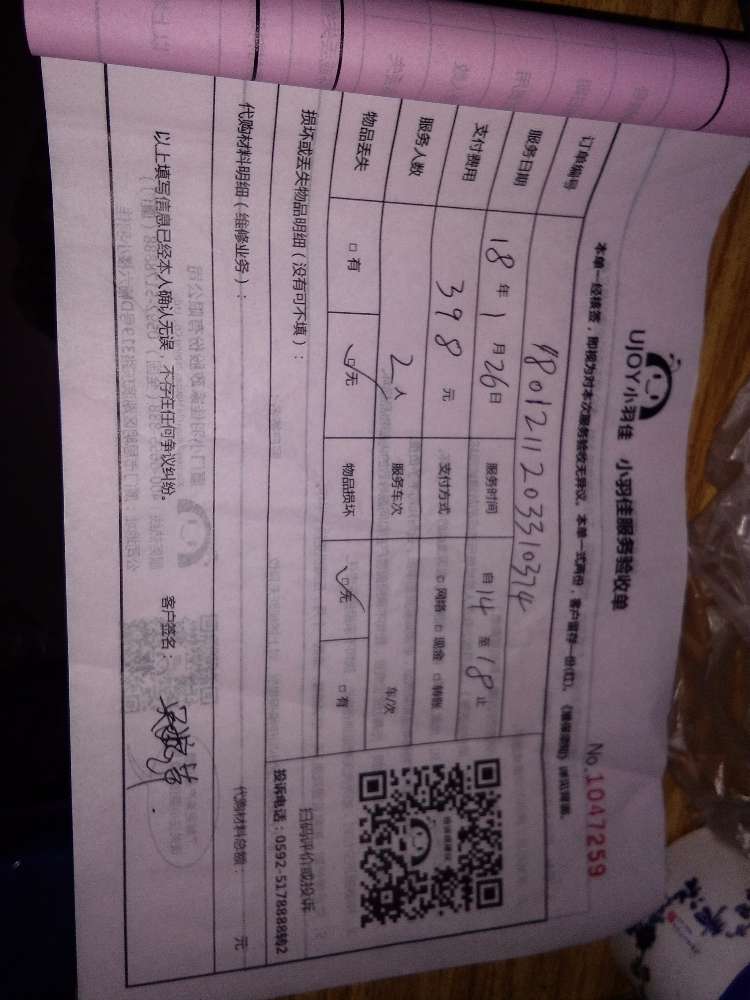 UJOY小羽佳 小羽佳服务验收单
No.1047259
本单一经核签，即视为对本次服务验收无异议。本单一式两份，客户留存一份(红)。
订单编号 1801211203310374
服务日期 18年1月26日 服务时间 自14至18止
支付费用 398元 支付方式 □网络 □现金 □转账
服务人数 2人 服务车次 车/次
物品丢失 □有 □无 物品损坏 □无 □有
扫码评价或投诉
损坏或丢失物品明细（没有可不填）：
投诉电话：0592-5178888转2
代购材料明细（维修业务）：
代购材料总额： 元
以上填写信息已经本人确认无误，不存在任何争议纠纷。 客户签名：